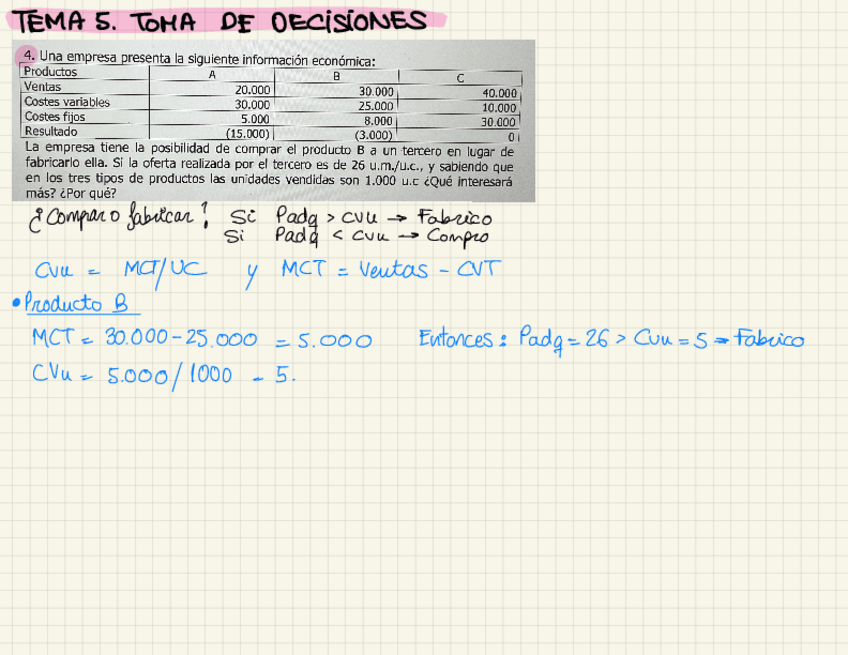 TEMA 5. TOMA DE DECISIONES
4. Una empresa presenta la siguiente información económica:
Productos A B C
Ventas 20.000 30.000 40.000
Costes variables 30.000 25.000 10.000
Costes fijos 5.000 8.000 30.000
Resultado (15.000) (3.000) 0
La empresa tiene la posibilidad de comprar el producto B a un tercero en lugar de
fabricarlo ella. Si la oferta realizada por el tercero es de 26 u.m./u.c., y sabiendo que
en los tres tipos de productos las unidades vendidas son 1.000 u.c ¿Qué interesará
más? ¿Por qué?
¿Compar o fabricar? Si Padq > CVu → Fabrico
Si Padq < CVu → Compro
CVu = MCT/UC y MCT = Ventas - CVT
• Producto B
MCT = 30.000 - 25.000 = 5.000 Entonces: Padq = 26 > CVu = 5 → Fabrico
CVu = 5.000/1000 = 5.